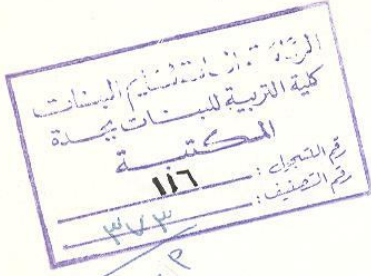 الرئاسة العامة لتعليم البنات
كلية التربية للبنات بجدة
المكتبة
رقم التسجيل : ١١٦
رقم التصنيف : ٣٧٣